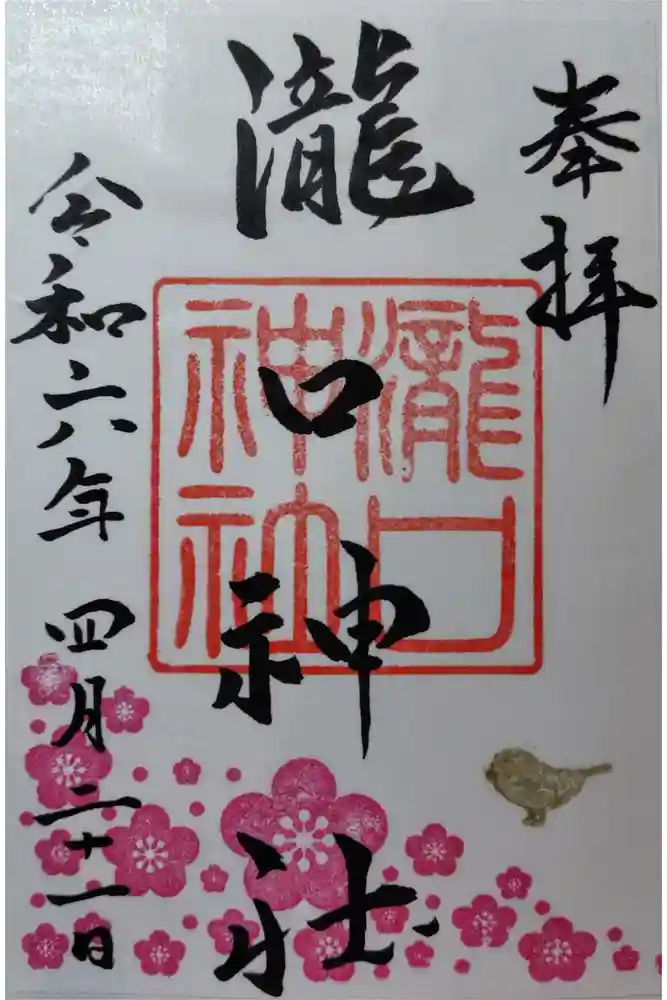 奉拝
瀧口神社
瀧口
神社
令和六年四月二十一日